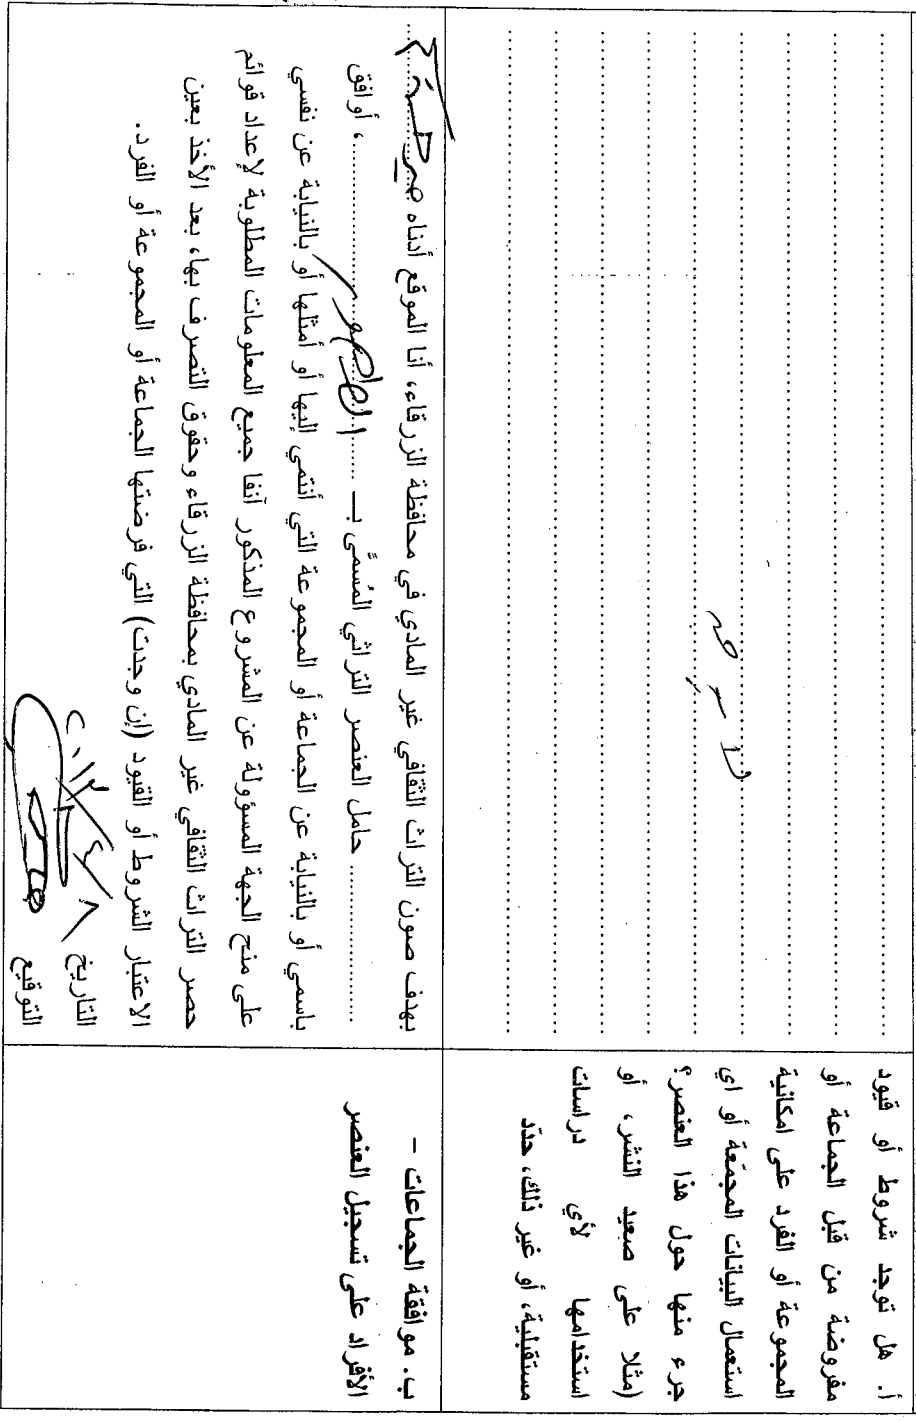 أ. هل توجد شروط أو قيود
مفروضة من قبل الجماعة أو
المجموعة أو الفرد على امكانية
استعمال البيانات المجمّعة أو اي
جزء منها حول هذا العنصر؟
(مثلا على صعيد النشر، أو
استخدامها لأي دراسات
مستقبلية، أو غير ذلك، حدّد
لا يوجد
ب. موافقة الجماعات –
الأفراد على تسجيل العنصر
بهدف صون التراث الثقافي غير المادي في محافظة الزرقاء، أنا الموقع أدناه
حامل العنصر التراثي المُسمَّى بـ ، أوافق
باسمي أو بالنيابة عن الجماعة أو المجموعة التي أنتمي إليها أو أمثلها أو بالنيابة عن نفسي
على منح الجهة المسؤولة عن المشروع المذكور آنفا جميع المعلومات المطلوبة لإعداد قوائم
حصر التراث الثقافي غير المادي بمحافظة الزرقاء وحقوق التصرف بها، بعد الأخذ بعين
الاعتبار الشروط أو القيود (إن وجدت) التي فرضتها الجماعة أو المجموعة أو الفرد.
التاريخ
التوقيع